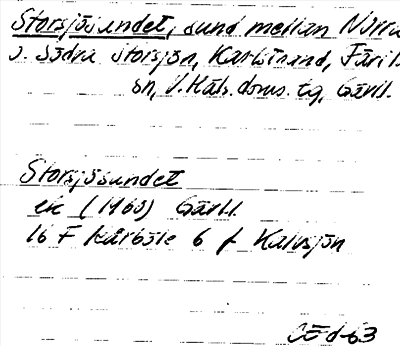 Storsjösundet, sund mellan Norra
o. Södra Storsjön, Karlstrand, Färila
sn, V. Häls. doms. tg, Gävl.
Storsjösundet
ek (1960) Gävl.
16 F Kårböle 6 f Kalvsjön
CÖ d-63